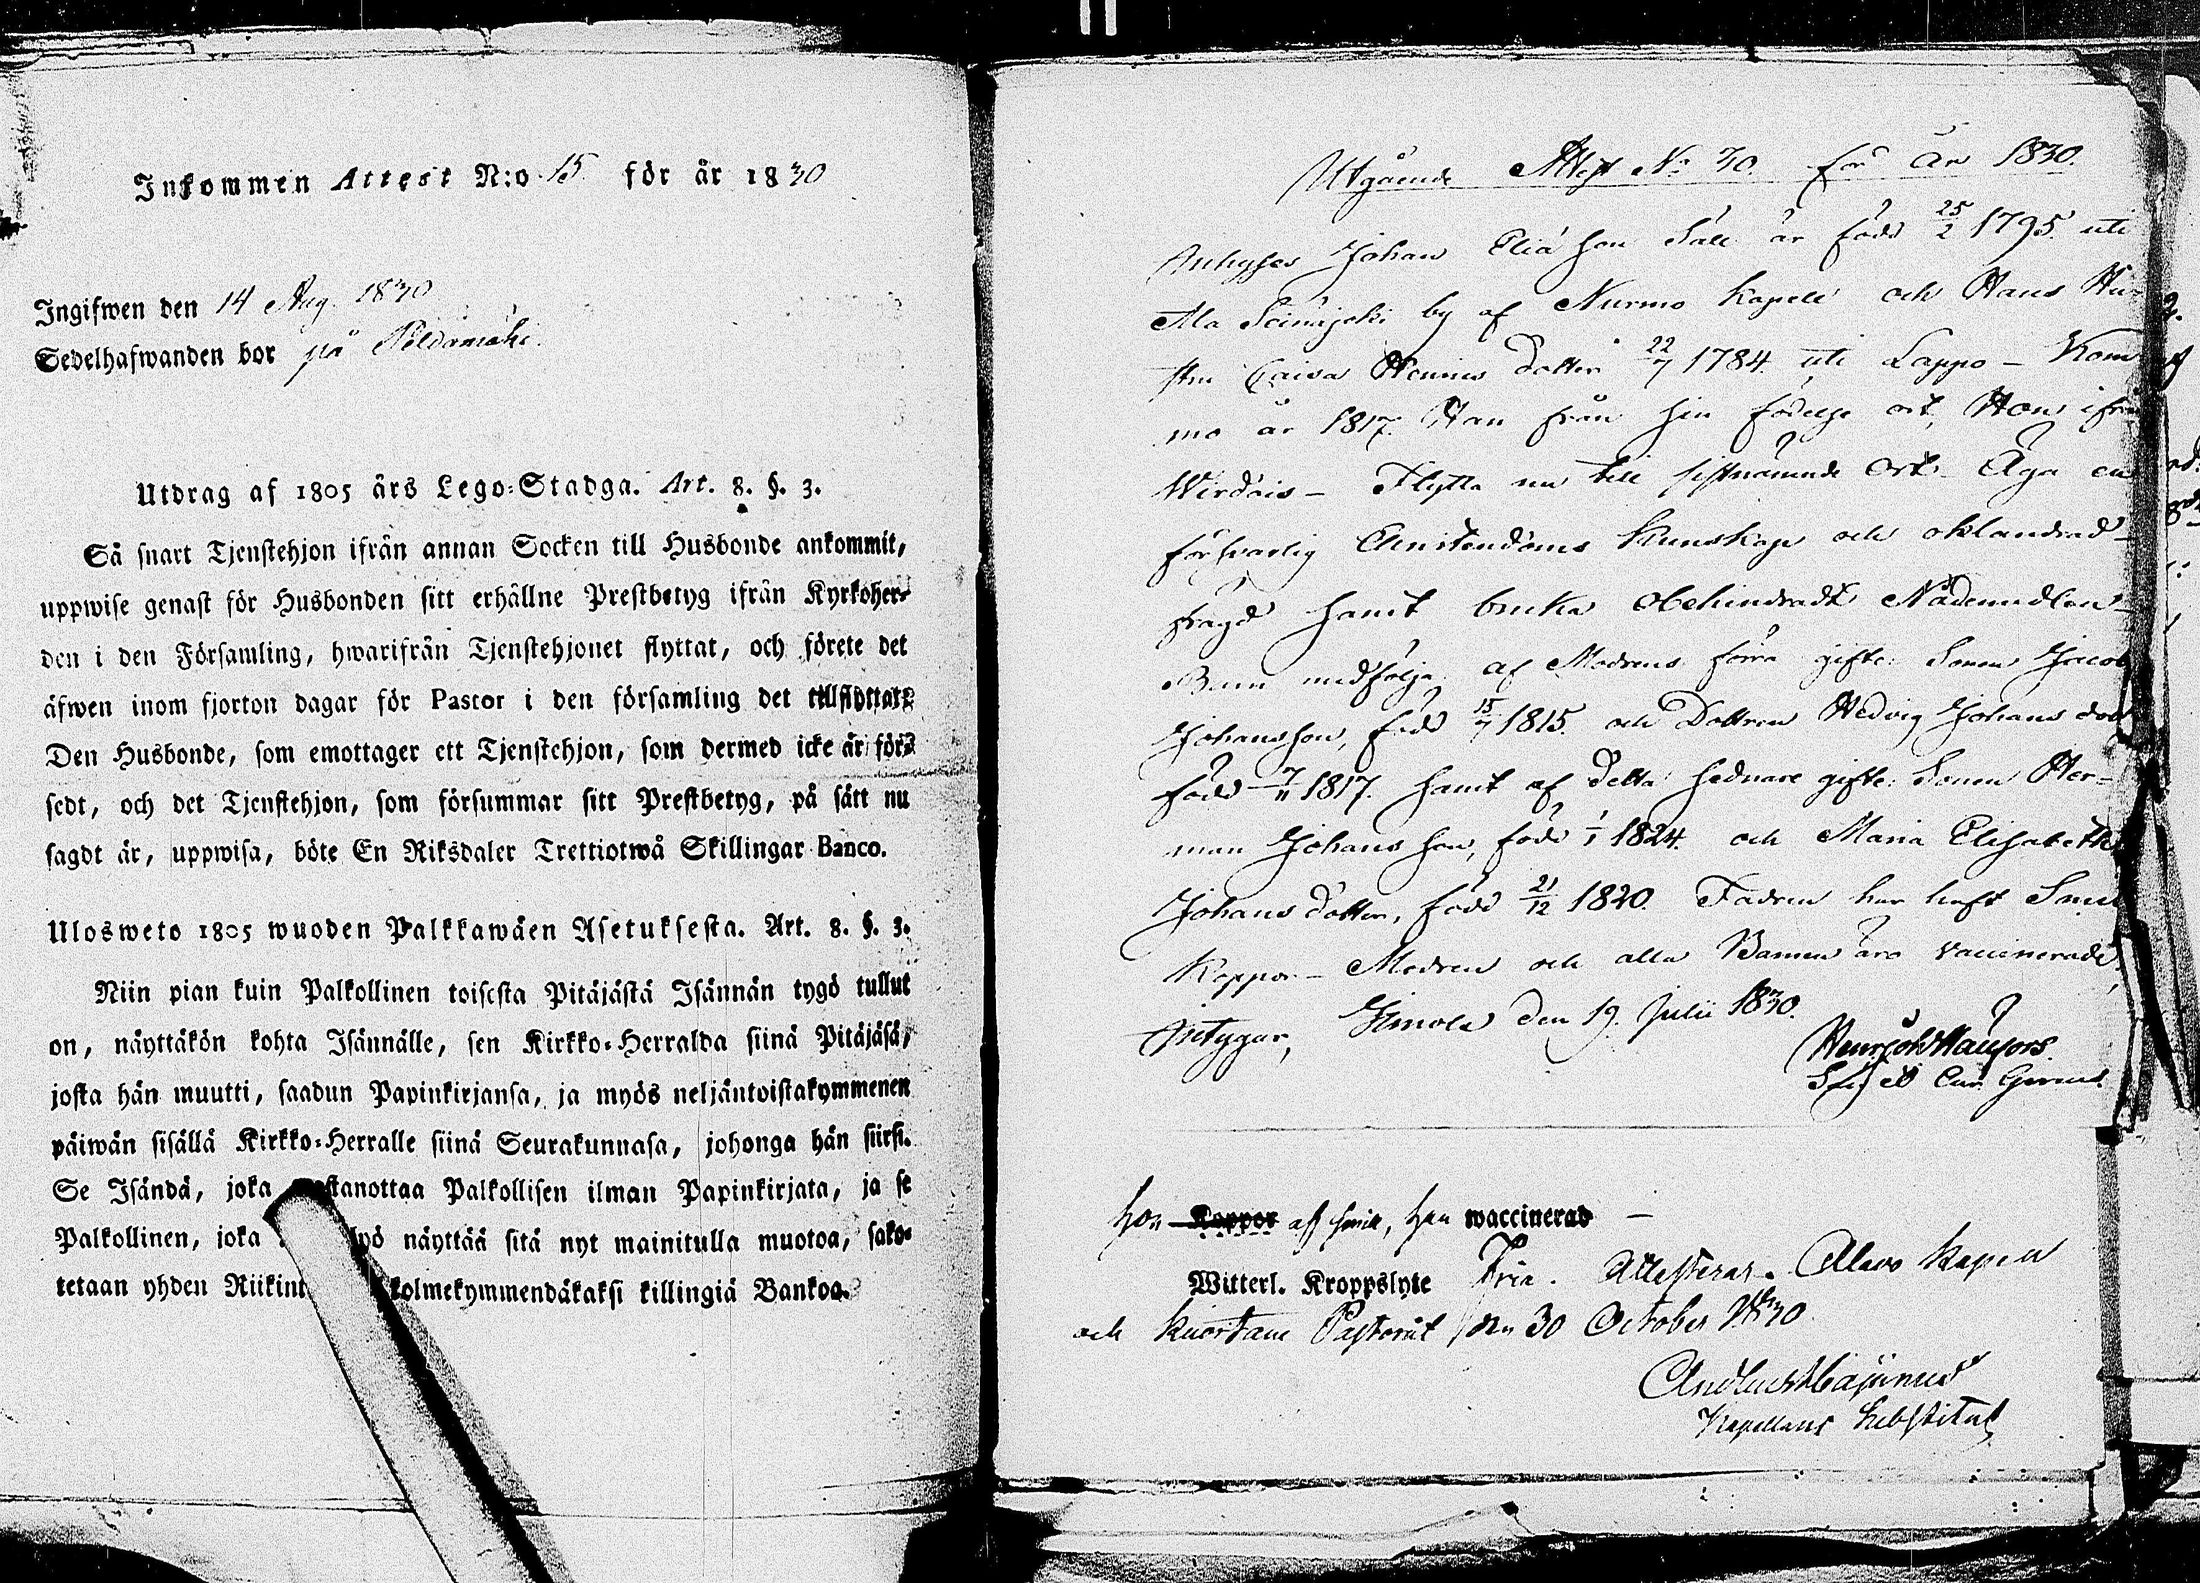 Inkommen Attest N:o 15 för år 1830
Ingifwen den 14 Aug. 1830
Sedelhafwanden bor på Peldomäki.
Utdrag af 1805 års Lego-Stadga. Art. 8. §. 3.
Så snart Tjenstehjon ifrån annan Socken till Husbonde ankommit,
uppwise genast för Husbonden sitt erhållne Prestbetyg ifrån Kyrkoher-
den i den Församling, hwarifrån Tjenstehjonet flyttat, och förete det
äfwen inom fjorton dagar för Pastor i den församling det tillflyttat.
Den Husbonde, som emottager ett Tjenstehjon, som dermed icke är för-
sedt, och det Tjenstehjon, som försummar sitt Prestbetyg, på sätt nu
sagdt är, uppwisa, böte En Riksdaler Trettiotwå Skillingar Banco.
Ulosweto 1805 wuoden Palkkawäen Asetuksesta. Art. 8. §. 3.
Niin pian kuin Palkollinen toisesta Pitäjästä Isännän tygö tullut
on, näyttäkön kohta Isännälle, sen Kirkko-Herralda siinä Pitäjäsä,
josta hän muutti, saadun Papinkirjansa, ja myös neljäntoistakymmenen
päiwän sisällä Kirkko-Herralle siinä Seurakunnasa, johonga hän siirsi.
Se Isändä, joka stanottaa Palkollisen ilman Papinkirjata, ja se
Palkollinen, joka yö näyttää sitä nyt mainitulla muotoa, sako-
tetaan yhden Riikint kolmekymmendäkaksi killingiä Bankoa.
Utgående Attest No 30. för år 1830.
Inhyses Johan Eliasson Sale är född 25/2 1795. uti
Ala Seinäjoki by af Nurmo Kapell och Hans Hu-
stru Caisa Henrics dotter 22/7 1784. uti Lappo - Kom
mo år 1817. Han från sin födelse ort, Hon ifrån
Wirdois - Flytta nu till sistnämnde ort. Äga en
försvarlig Christendoms Kunskap och oklandrad
frägd samt bruka obehindradt Nådemedlen -
Barn medfölja: af Modrens förra gifte: Sonen Jacob
Johansson, född 15/7 1815. och Dottren Hedvig Johans dott
född 7/11 1817. samt af detta sednare gifte: Sonen Her-
man Johans son, född 1/1 1824. och Maria Elisabeth
Johans dotter, född 21/12 1820. Fadren har haft Smit
Koppor - Modren och alla Barnen äro vaccinerade,
Intygar, Ilmola den 19. Julii 1830.
Henr:
Hon Koppor af smit, han waccinerad —
Witterl. Kroppslyte Fria. Attesteras. Alavo Kapell
och Kuortane Pastorat den 30 October 1830
Kapellans Substitut